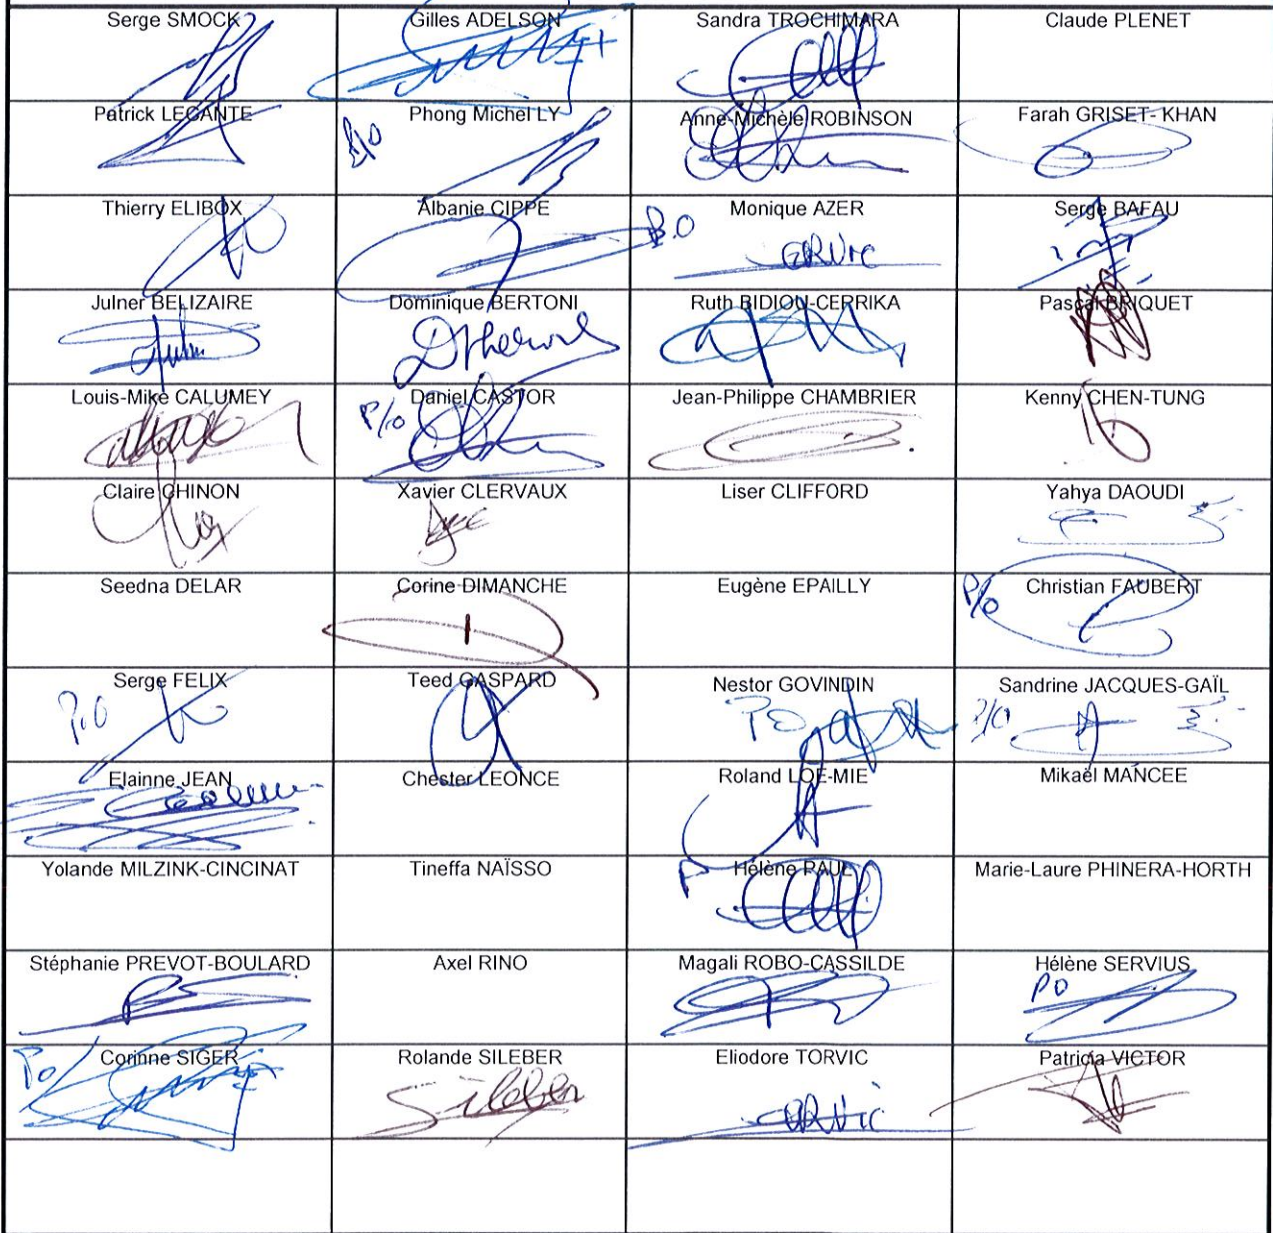 Serge SMOCK
Gilles ADELSON
Sandra TROCHIMARA
Claude PLENET
Patrick LECANTE
P/O
Phong Michel LY
Anne-Michèle ROBINSON
Farah GRISET- KHAN
Thierry ELIBOX
Albanie CIPPE
P.O
Monique AZER
Serge BAFAU
Julner BELIZAIRE
Dominique BERTONI
Ruth BIDIOU-CERRIKA
Pascal BRIQUET
Louis-Mike CALUMEY
P/o
Daniel CASTOR
Jean-Philippe CHAMBRIER
Kenny CHEN-TUNG
Claire CHINON
Xavier CLERVAUX
Liser CLIFFORD
Yahya DAOUDI
Seedna DELAR
Corine DIMANCHE
Eugène EPAILLY
P/o
Christian FAUBERT
Serge FELIX
P.O
Teed GASPARD
Nestor GOVINDIN
PO
Sandrine JACQUES-GAÏL
P/O
Elainne JEAN
Chester LEONCE
Roland LOE-MIE
Mikaël MANCEE
Yolande MILZINK-CINCINAT
Tineffa NAÏSSO
Hélène PAUL
Marie-Laure PHINERA-HORTH
Stéphanie PREVOT-BOULARD
Axel RINO
Magali ROBO-CASSILDE
Hélène SERVIUS
PO
Po
Corinne SIGER
Rolande SILEBER
Sileber
Eliodore TORVIC
Patricia VICTOR